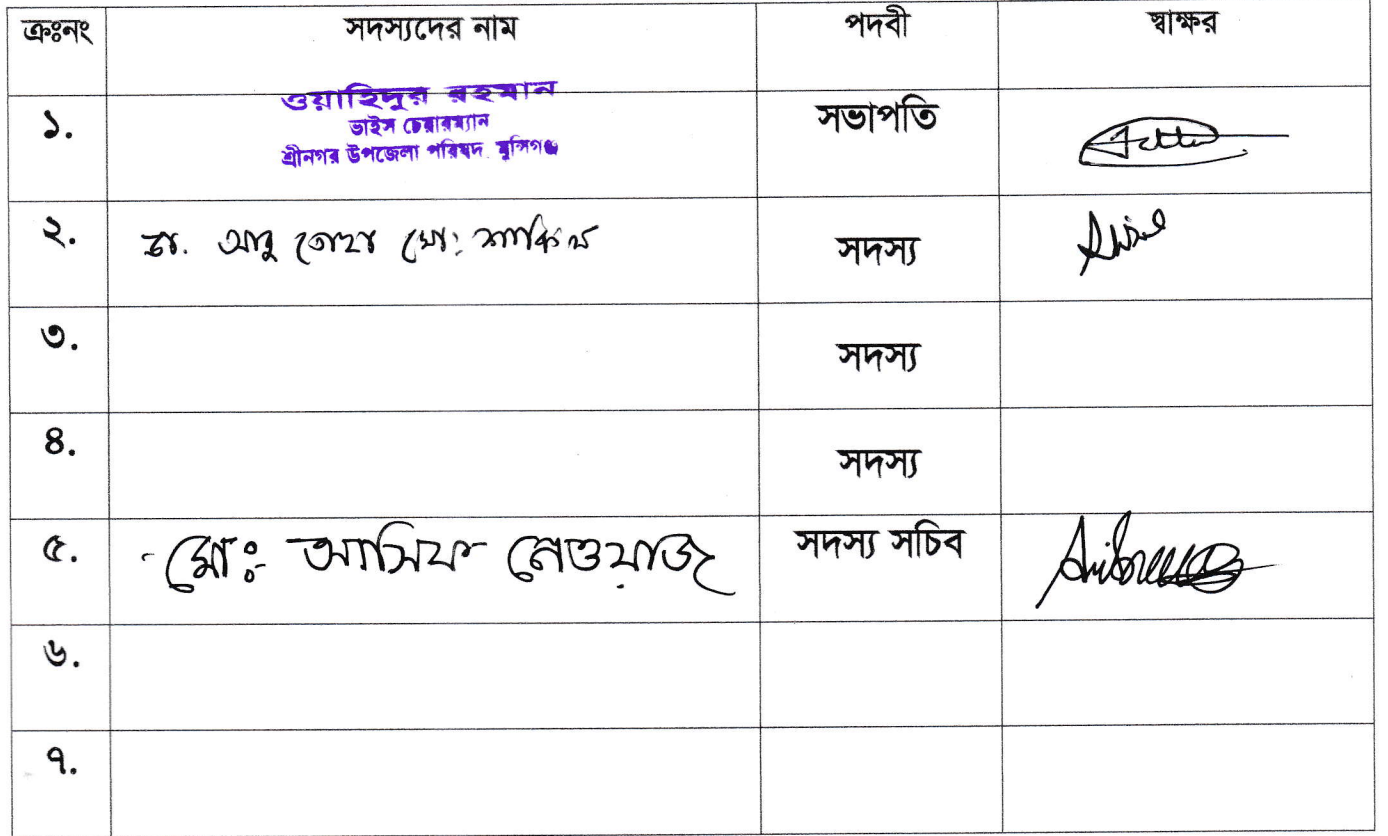 ক্রঃনং সদস্যদের নাম পদবী স্বাক্ষর
১. ওয়াহিদুর রহমান সভাপতি
ভাইস চেয়ারম্যান
শ্রীনগর উপজেলা পরিষদ মুন্সিগঞ্জ
২. ডা. আবু তোহা মো: শাকিল সদস্য
৩. সদস্য
৪. সদস্য
৫. মোঃ আসিফ নেওয়াজ সদস্য সচিব
৬.
৭.